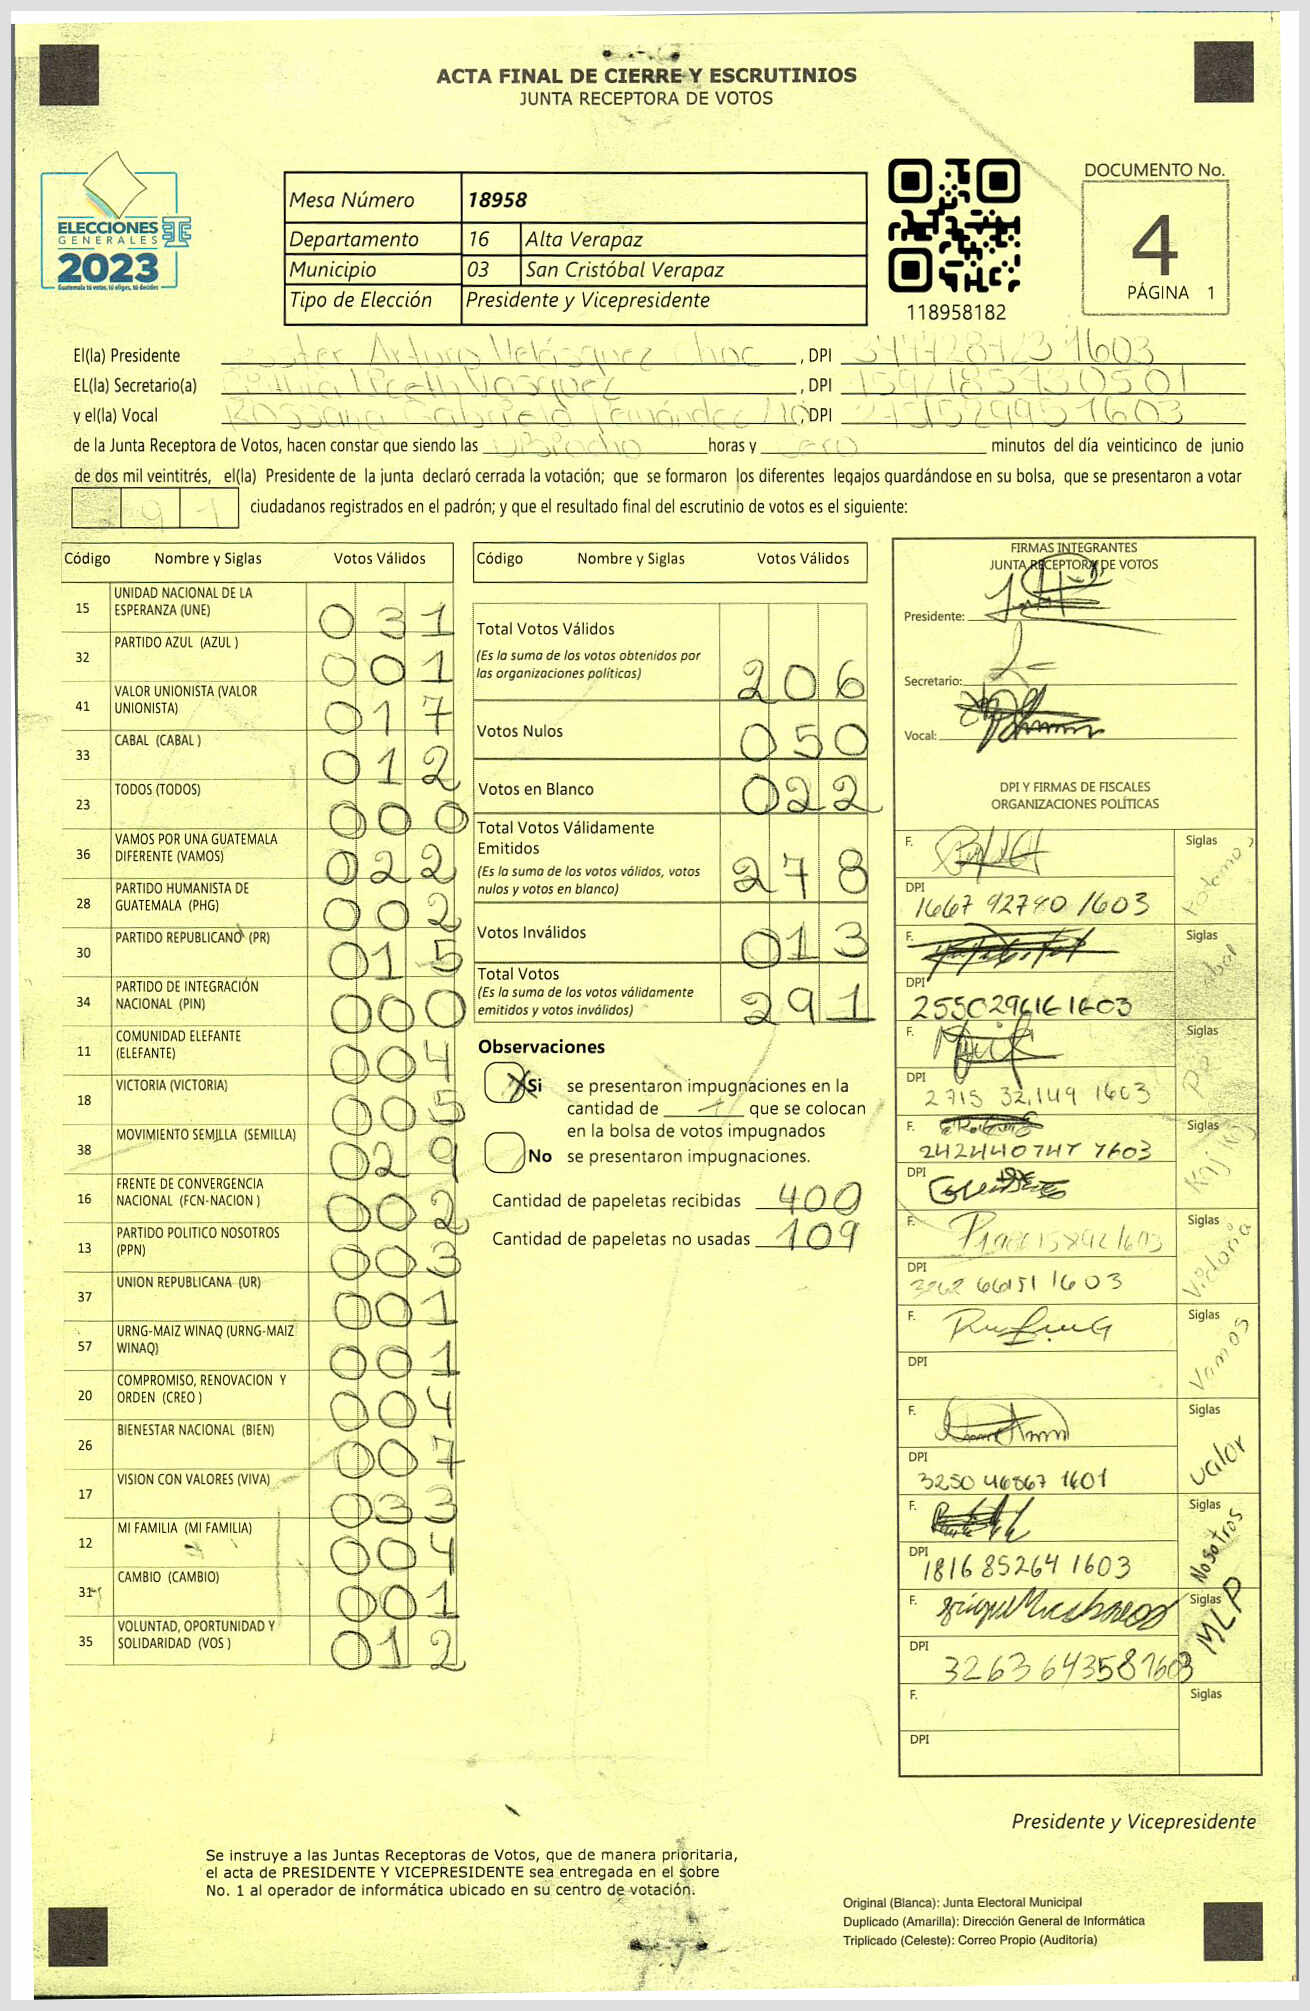 ACTA FINAL DE CIERRE Y ESCRUTINIOS
JUNTA RECEPTORA DE VOTOS
ELECCIONES
GENERALES
2023
Guatemala tú votas, tú eliges, tú decides
Mesa Número 18958
Departamento 16 Alta Verapaz
Municipio 03 San Cristóbal Verapaz
Tipo de Elección Presidente y Vicepresidente
118958182
DOCUMENTO No.
4
PÁGINA 1
El(la) Presidente Arturo Velásquez Choc, DPI 1603
EL(la) Secretario(a) Vásquez, DPI
y el(la) Vocal Rossana Gabriela Fernández, DPI 1603
de la Junta Receptora de Votos, hacen constar que siendo las horas y cero minutos del día veinticinco de junio
de dos mil veintitrés, el(la) Presidente de la junta declaró cerrada la votación; que se formaron los diferentes legajos guardándose en su bolsa, que se presentaron a votar
91 ciudadanos registrados en el padrón; y que el resultado final del escrutinio de votos es el siguiente:
Código Nombre y Siglas Votos Válidos
15 UNIDAD NACIONAL DE LA ESPERANZA (UNE) 031
32 PARTIDO AZUL (AZUL ) 001
41 VALOR UNIONISTA (VALOR UNIONISTA) 017
33 CABAL (CABAL ) 012
23 TODOS (TODOS) 000
36 VAMOS POR UNA GUATEMALA DIFERENTE (VAMOS) 022
28 PARTIDO HUMANISTA DE GUATEMALA (PHG) 002
30 PARTIDO REPUBLICANO (PR) 015
34 PARTIDO DE INTEGRACIÓN NACIONAL (PIN) 000
11 COMUNIDAD ELEFANTE (ELEFANTE) 004
18 VICTORIA (VICTORIA) 005
38 MOVIMIENTO SEMILLA (SEMILLA) 029
16 FRENTE DE CONVERGENCIA NACIONAL (FCN-NACION ) 002
13 PARTIDO POLITICO NOSOTROS (PPN) 003
37 UNION REPUBLICANA (UR) 001
57 URNG-MAIZ WINAQ (URNG-MAIZ WINAQ) 001
20 COMPROMISO, RENOVACION Y ORDEN (CREO ) 004
26 BIENESTAR NACIONAL (BIEN) 007
17 VISION CON VALORES (VIVA) 033
12 MI FAMILIA (MI FAMILIA) 004
31 CAMBIO (CAMBIO) 001
35 VOLUNTAD, OPORTUNIDAD Y SOLIDARIDAD (VOS ) 012
Código Nombre y Siglas Votos Válidos
Total Votos Válidos 206
(Es la suma de los votos obtenidos por
las organizaciones políticas)
Votos Nulos 050
Votos en Blanco 022
Total Votos Válidamente
Emitidos 278
(Es la suma de los votos válidos, votos
nulos y votos en blanco)
Votos Inválidos 013
Total Votos 291
(Es la suma de los votos válidamente
emitidos y votos inválidos)
Observaciones
X Si se presentaron impugnaciones en la
cantidad de 1 que se colocan
en la bolsa de votos impugnados
No se presentaron impugnaciones.
Cantidad de papeletas recibidas 400
Cantidad de papeletas no usadas 109
FIRMAS INTEGRANTES
JUNTA RECEPTORA DE VOTOS
Presidente:
Secretario:
Vocal:
DPI Y FIRMAS DE FISCALES
ORGANIZACIONES POLÍTICAS
F. Siglas
DPI 1667 92740 1603
F. Siglas
DPI 255029616 1603
F. Siglas
DPI 2715 32,149 1603
F. Siglas
242440747 1603
DPI
F. Siglas Victoria
DPI 1603
F. Siglas Vamos
DPI
F. Siglas Valor
DPI 3250 46867 1601
F. Siglas Nosotros
DPI 1816 85264 1603
F. Siglas MLP
DPI 3263 64358 1603
F. Siglas
DPI
Presidente y Vicepresidente
Se instruye a las Juntas Receptoras de Votos, que de manera prioritaria,
el acta de PRESIDENTE Y VICEPRESIDENTE sea entregada en el sobre
No. 1 al operador de informática ubicado en su centro de votación.
Original (Blanca): Junta Electoral Municipal
Duplicado (Amarilla): Dirección General de Informática
Triplicado (Celeste): Correo Propio (Auditoría)